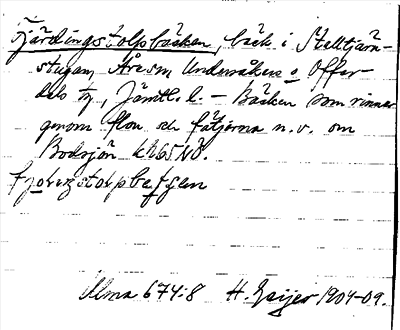 Fjärdingstolpbäcken, bäck i Stalltjärn-
stugan, Åresk. Undersåkers o Offer-
dals tg, Jämtl. l. – Bäcken som rinner
genom flon och fåtjärna n.v. om
Bodsjön kb65NO.
Ulma 674:8 H. Geijer 1904-09.